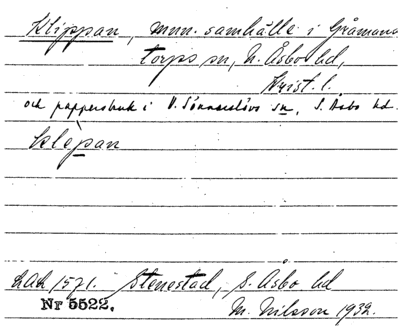 Klippan, mun. samhälle i Gråmans
torps sn, N. Åsbo hd,
Krist. l.
och pappersbruk i V. Sönnarslövs sn, S. Åsbo hd.
klèpan
LAL 1571. Stenestad, S. Åsbo hd
Nr 5522. M. Nilsson 1932.